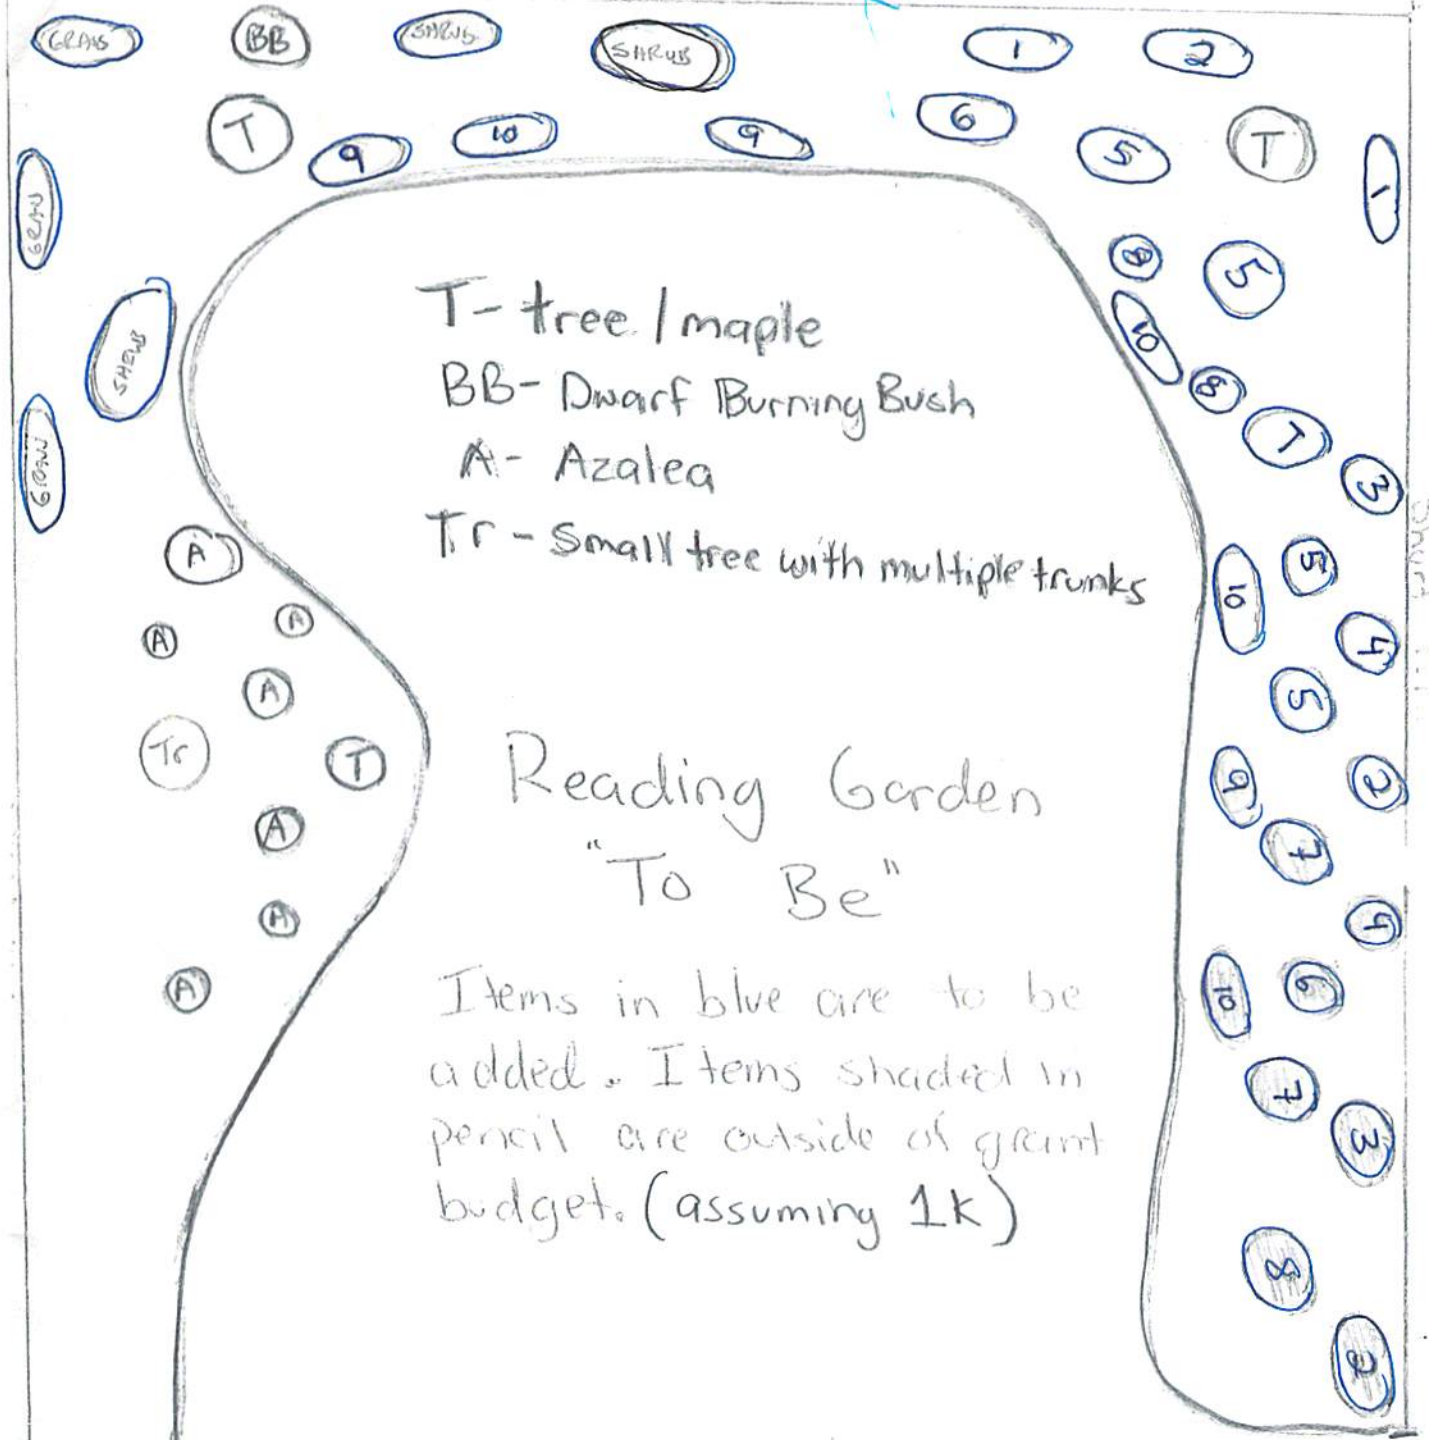 GRAN
BB
SHRUB
SHRUB
1
2
T
9
10
9
6
5
T
1
GRAN
8
5
SHRUB
10
8
T
3
GRAN
T- tree / maple
BB- Dwarf Burning Bush
A- Azalea
Tr - Small tree with multiple trunks
A
A
A
A
Tr
T
A
A
A
10
5
4
5
2
9
7
4
10
6
7
3
8
2
Reading Garden
"To Be"
Items in blue are to be
added. Items shaded in
pencil are outside of grant
budget. (assuming 1K)